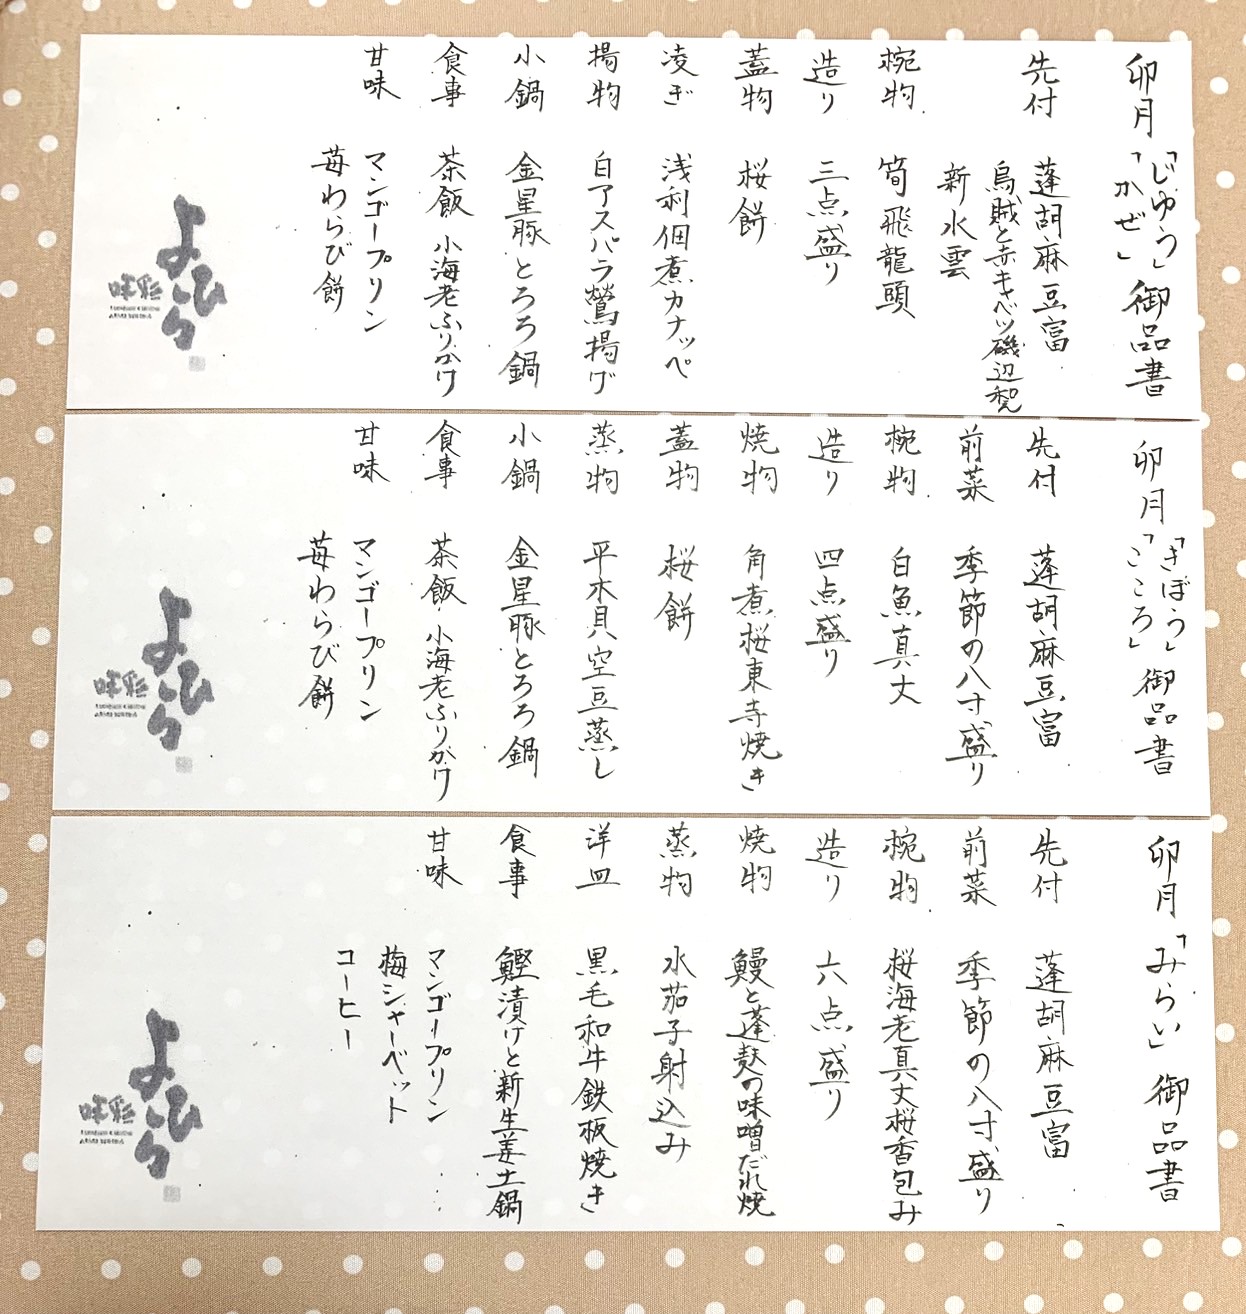 卯月「じゆう」「かぜ」御品書
先付 蓬胡麻豆富
烏賊と赤キャベツ磯辺
新水雲
椀物 筍飛龍頭
造り 三点盛り
蓋物 桜餅
凌ぎ 浅利佃煮カナッペ
揚物 白アスパラ鶯揚げ
小鍋 金星豚とろろ鍋
食事 茶飯 小海老ふりかけ
甘味 マンゴープリン
苺わらび餅
よひら
卯月「きぼう」「こころ」御品書
先付 蓬胡麻豆富
前菜 季節の八寸盛り
椀物 白魚真丈
造り 四点盛り
焼物 角煮桜東寺焼き
蓋物 桜餅
蒸物 平水貝空豆蒸し
小鍋 金星豚とろろ鍋
食事 茶飯 小海老ふりかけ
甘味 マンゴープリン
苺わらび餅
よひら
卯月「みらい」御品書
先付 蓬胡麻豆富
前菜 季節の八寸盛り
椀物 桜海老真丈桜香包み
造り 六点盛り
焼物 鰻と蓬麸の味噌だれ焼
蒸物 水茄子射込み
洋皿 黒毛和牛鉄板焼き
食事 鰹漬けと新生姜土鍋
甘味 マンゴープリン
梅シャーベット
コーヒー
よひら